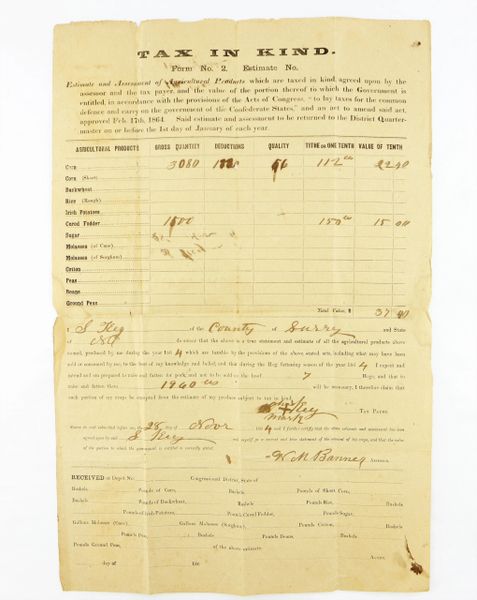 TAX IN KIND.
Form No. 2. Estimate No.
Estimate and Assessment of Agricultural Products which are taxed in kind, agreed upon by the
assessor and the tax payer, and the value of the portion thereof to which the Government is
entitled, in accordance with the provisions of the Acts of Congress, "to lay taxes for the common
defence and carry on the government of the Confederate States," and an act to amend said act,
approved Feb. 17th, 1864. Said estimate and assessment to be returned to the District Quarter-
master on or before the 1st day of January of each year.
AGRICULTURAL PRODUCTS GROSS QUANTITY DEDUCTIONS QUALITY TITHE OR ONE TENTH VALUE OF TENTH
Corn 3080 112 22 40
Corn (Short)
Buckwheat
Rice (Rough)
Irish Potatoes
Cured Fodder 1500 150 15 00
Sugar
Molasses (of Cane)
Molasses (of Sorghum)
Cotton
Peas
Beans
Ground Peas
Total Value, $ 37 40
I S Key of the County of Surry and State
of NC do swear that the above is a true statement and estimate of all the agricultural products above
named, produced by me during the year 186 4 which are taxable by the provisions of the above stated acts, including what may have been
sold or consumed by me, to the best of my knowledge and belief; and that during the Hog fattening season of the year 186 4 I expect and
intend to raise and fatten for pork, and not to be sold on the hoof 7 Hogs, and that to
raise and fatten them 1960 will be necessary, I therefore claim that
such portion of my crops be exempted from the estimate of my produce subject to tax in kind.
S Key TAX PAYER.
mark
Sworn to and subscribed before me, the 28 day of Novr 186 4 and I further certify that the above estimate and assessment was
agreed upon by said S Key and myself as a correct and true statement of the amount of his crops, and that the value
of the portion to which the government is entitled is correctly stated.
W M Banner ASSESSOR.
RECEIVED at Depot No. Congressional District, State of
Bushels Pounds of Corn, Bushels Pounds of Short Corn,
Bushels Pounds of Buckwheat, Bushels Pounds Rice, Bushels
Pounds Irish Potatoes, Pounds Cured Fodder, Pounds Sugar,
Gallons Molasses (Cane), Gallons Molasses (Sorghum), Pounds Cotton, Bushels
Pounds Peas, Bushels Pounds Beans, Bushels
Pounds Ground Peas, of the above estimate.
day of 186 AGENT.